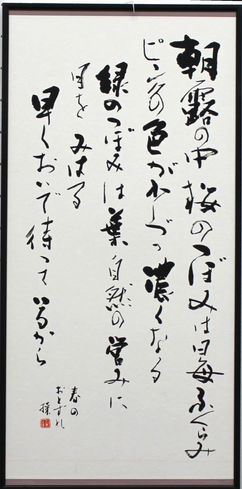 朝露の中桜のつぼみは日毎ふくらみ
ピンクの色が少しづつ濃くなる
緑のつぼみは葉自然の営みに
目をみはる
早くおいで待っているから
春の
おとずれ